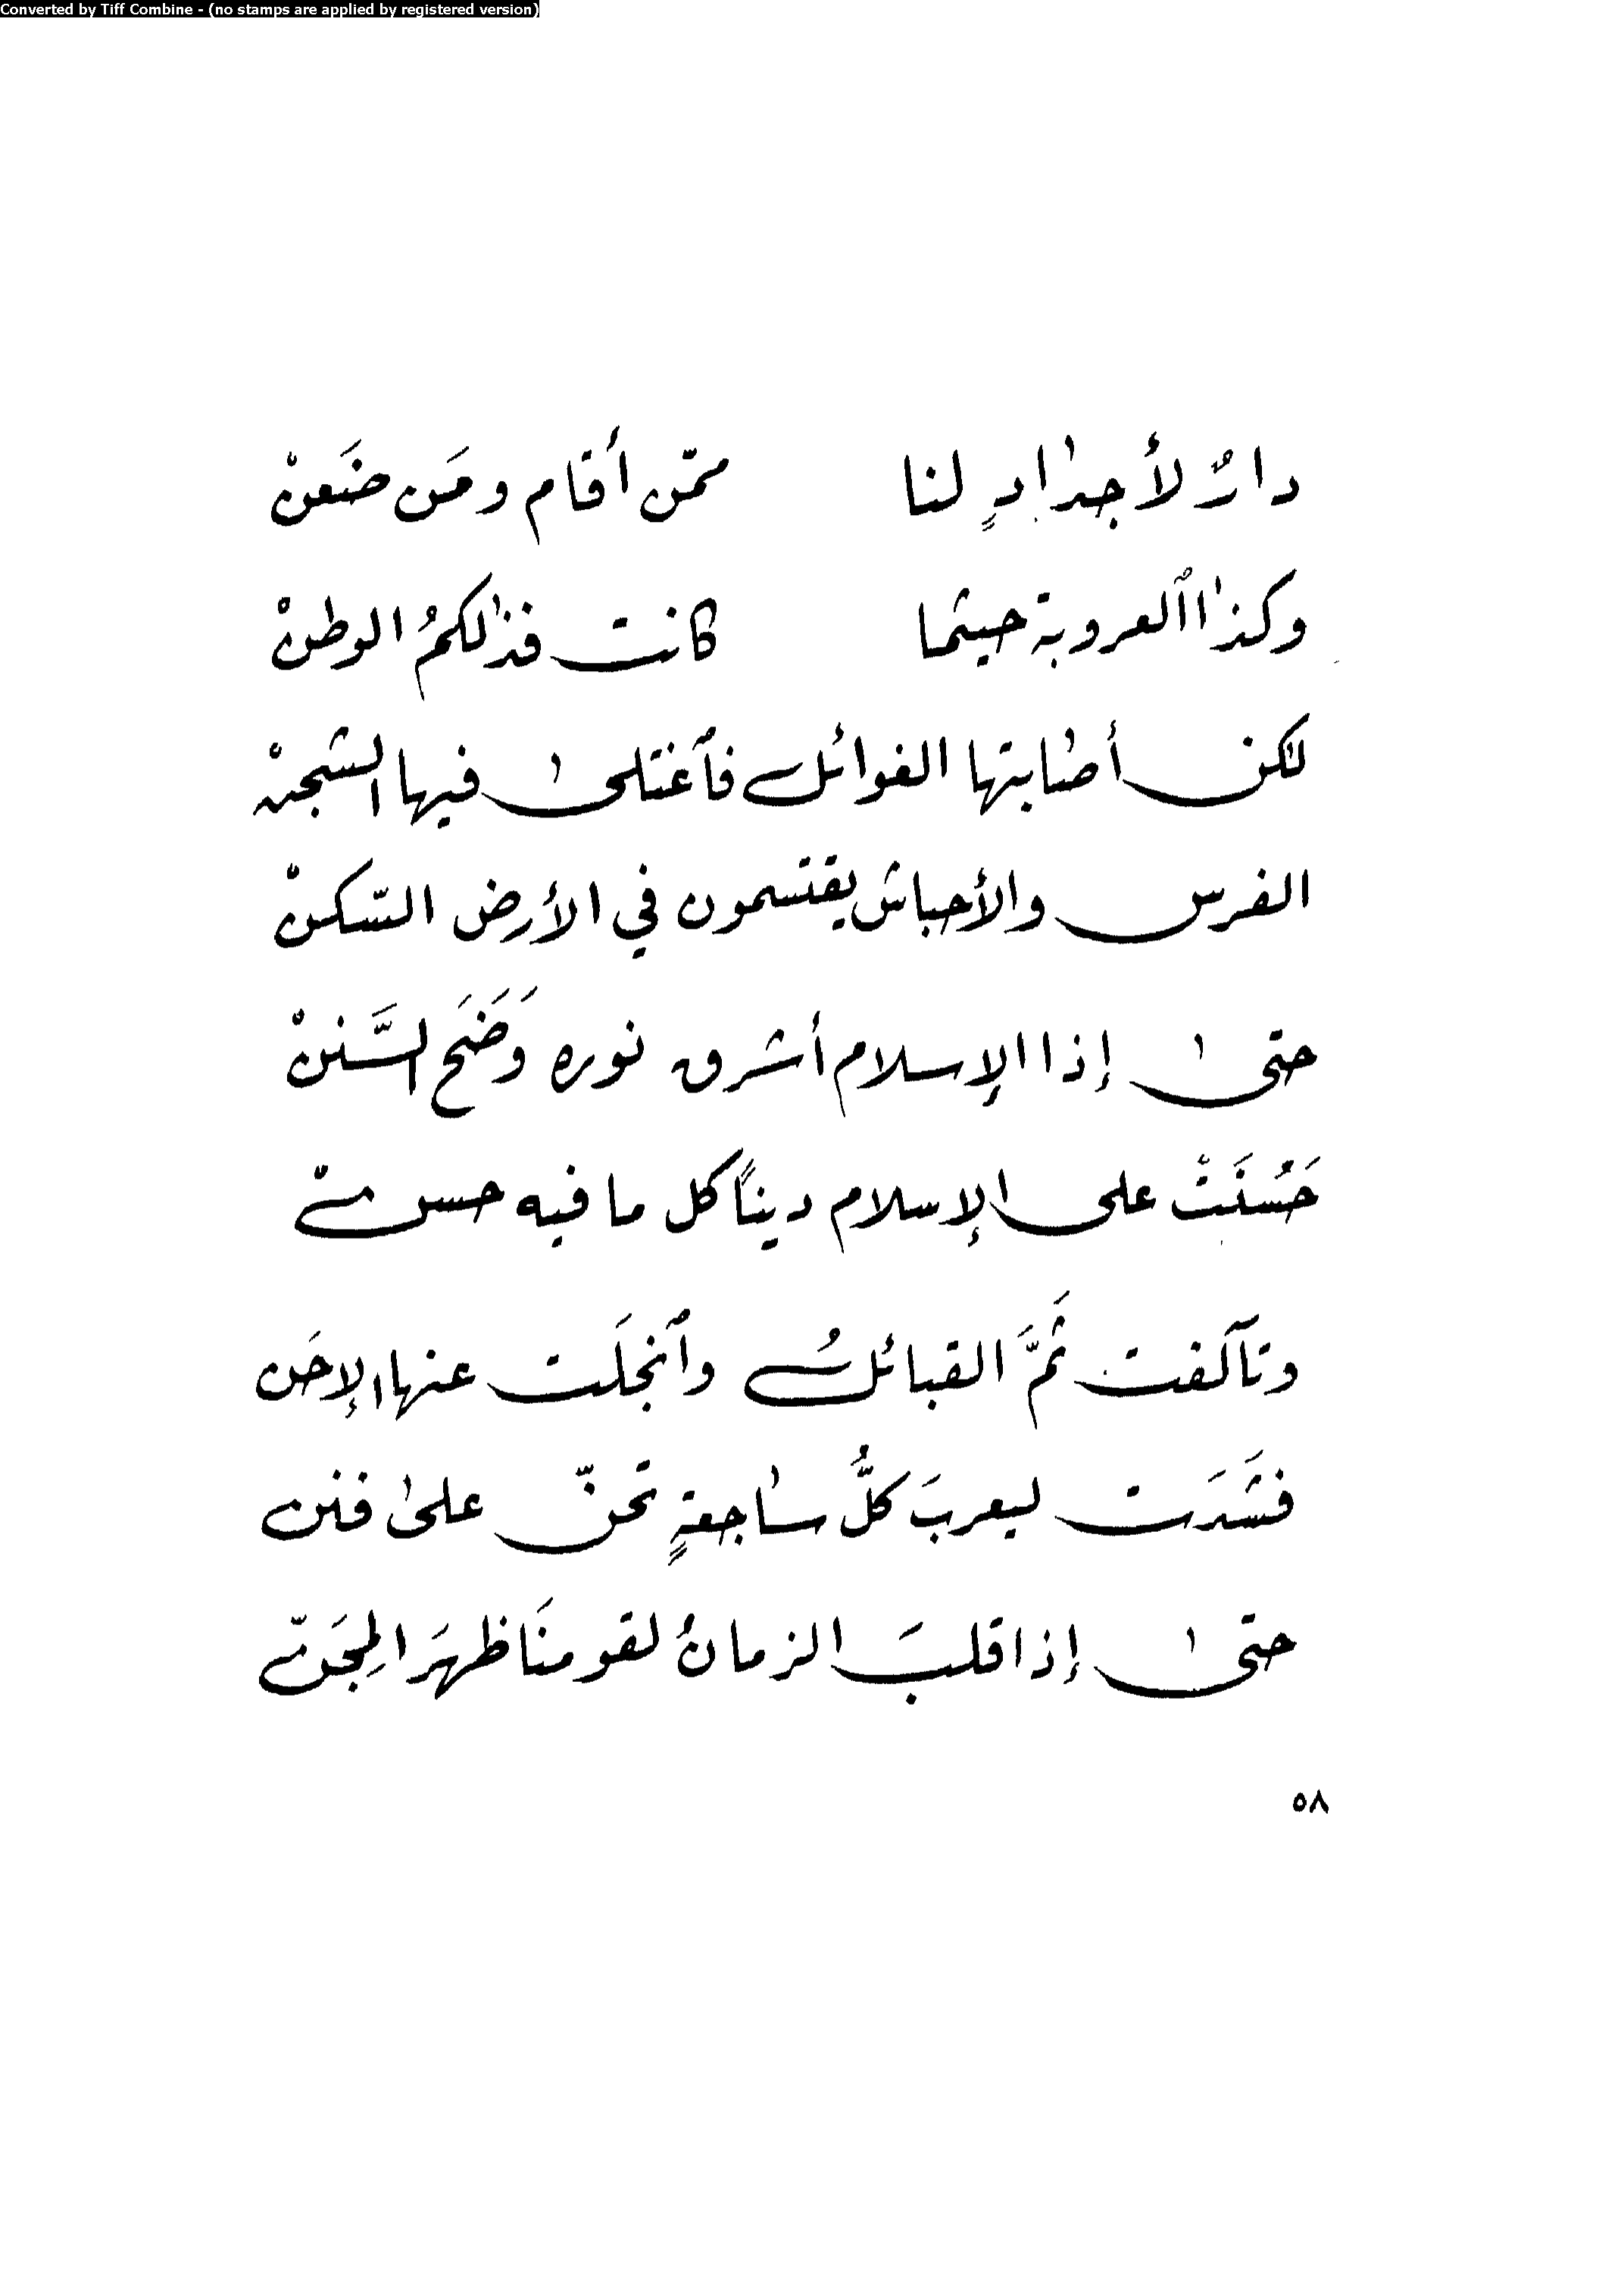 Converted by Tiff Combine - (no stamps are applied by registered version)
دارٌ لأجدادٍ لنا ممّن أقام ومَن ضَعنْ
وكذا ٱلعروبة حيثما كانت فذٰلكمُ الوطنْ
لٰكن أصابتها الغوائل فٱغتلىٰ فيها الشجنْ
الفرس والأحباش يقتسمون في الأرض السّكنْ
حتىٰ إذا الإسلام أشرق نوره وَضَحَ السَّننْ
حَسُنَتْ على الإسلام ديناً كل ما فيه حسنْ
وتآلفت ثَمَّ القبائلُ وٱنجلَت عنها الإحَن
فشَدَت ليعربَ كلُّ ساجعةٍ تحنّ علىٰ فنن
حتىٰ إذا قلبَ الزمانُ لقومنَا ظهرَ المِجَنّ
٥٨